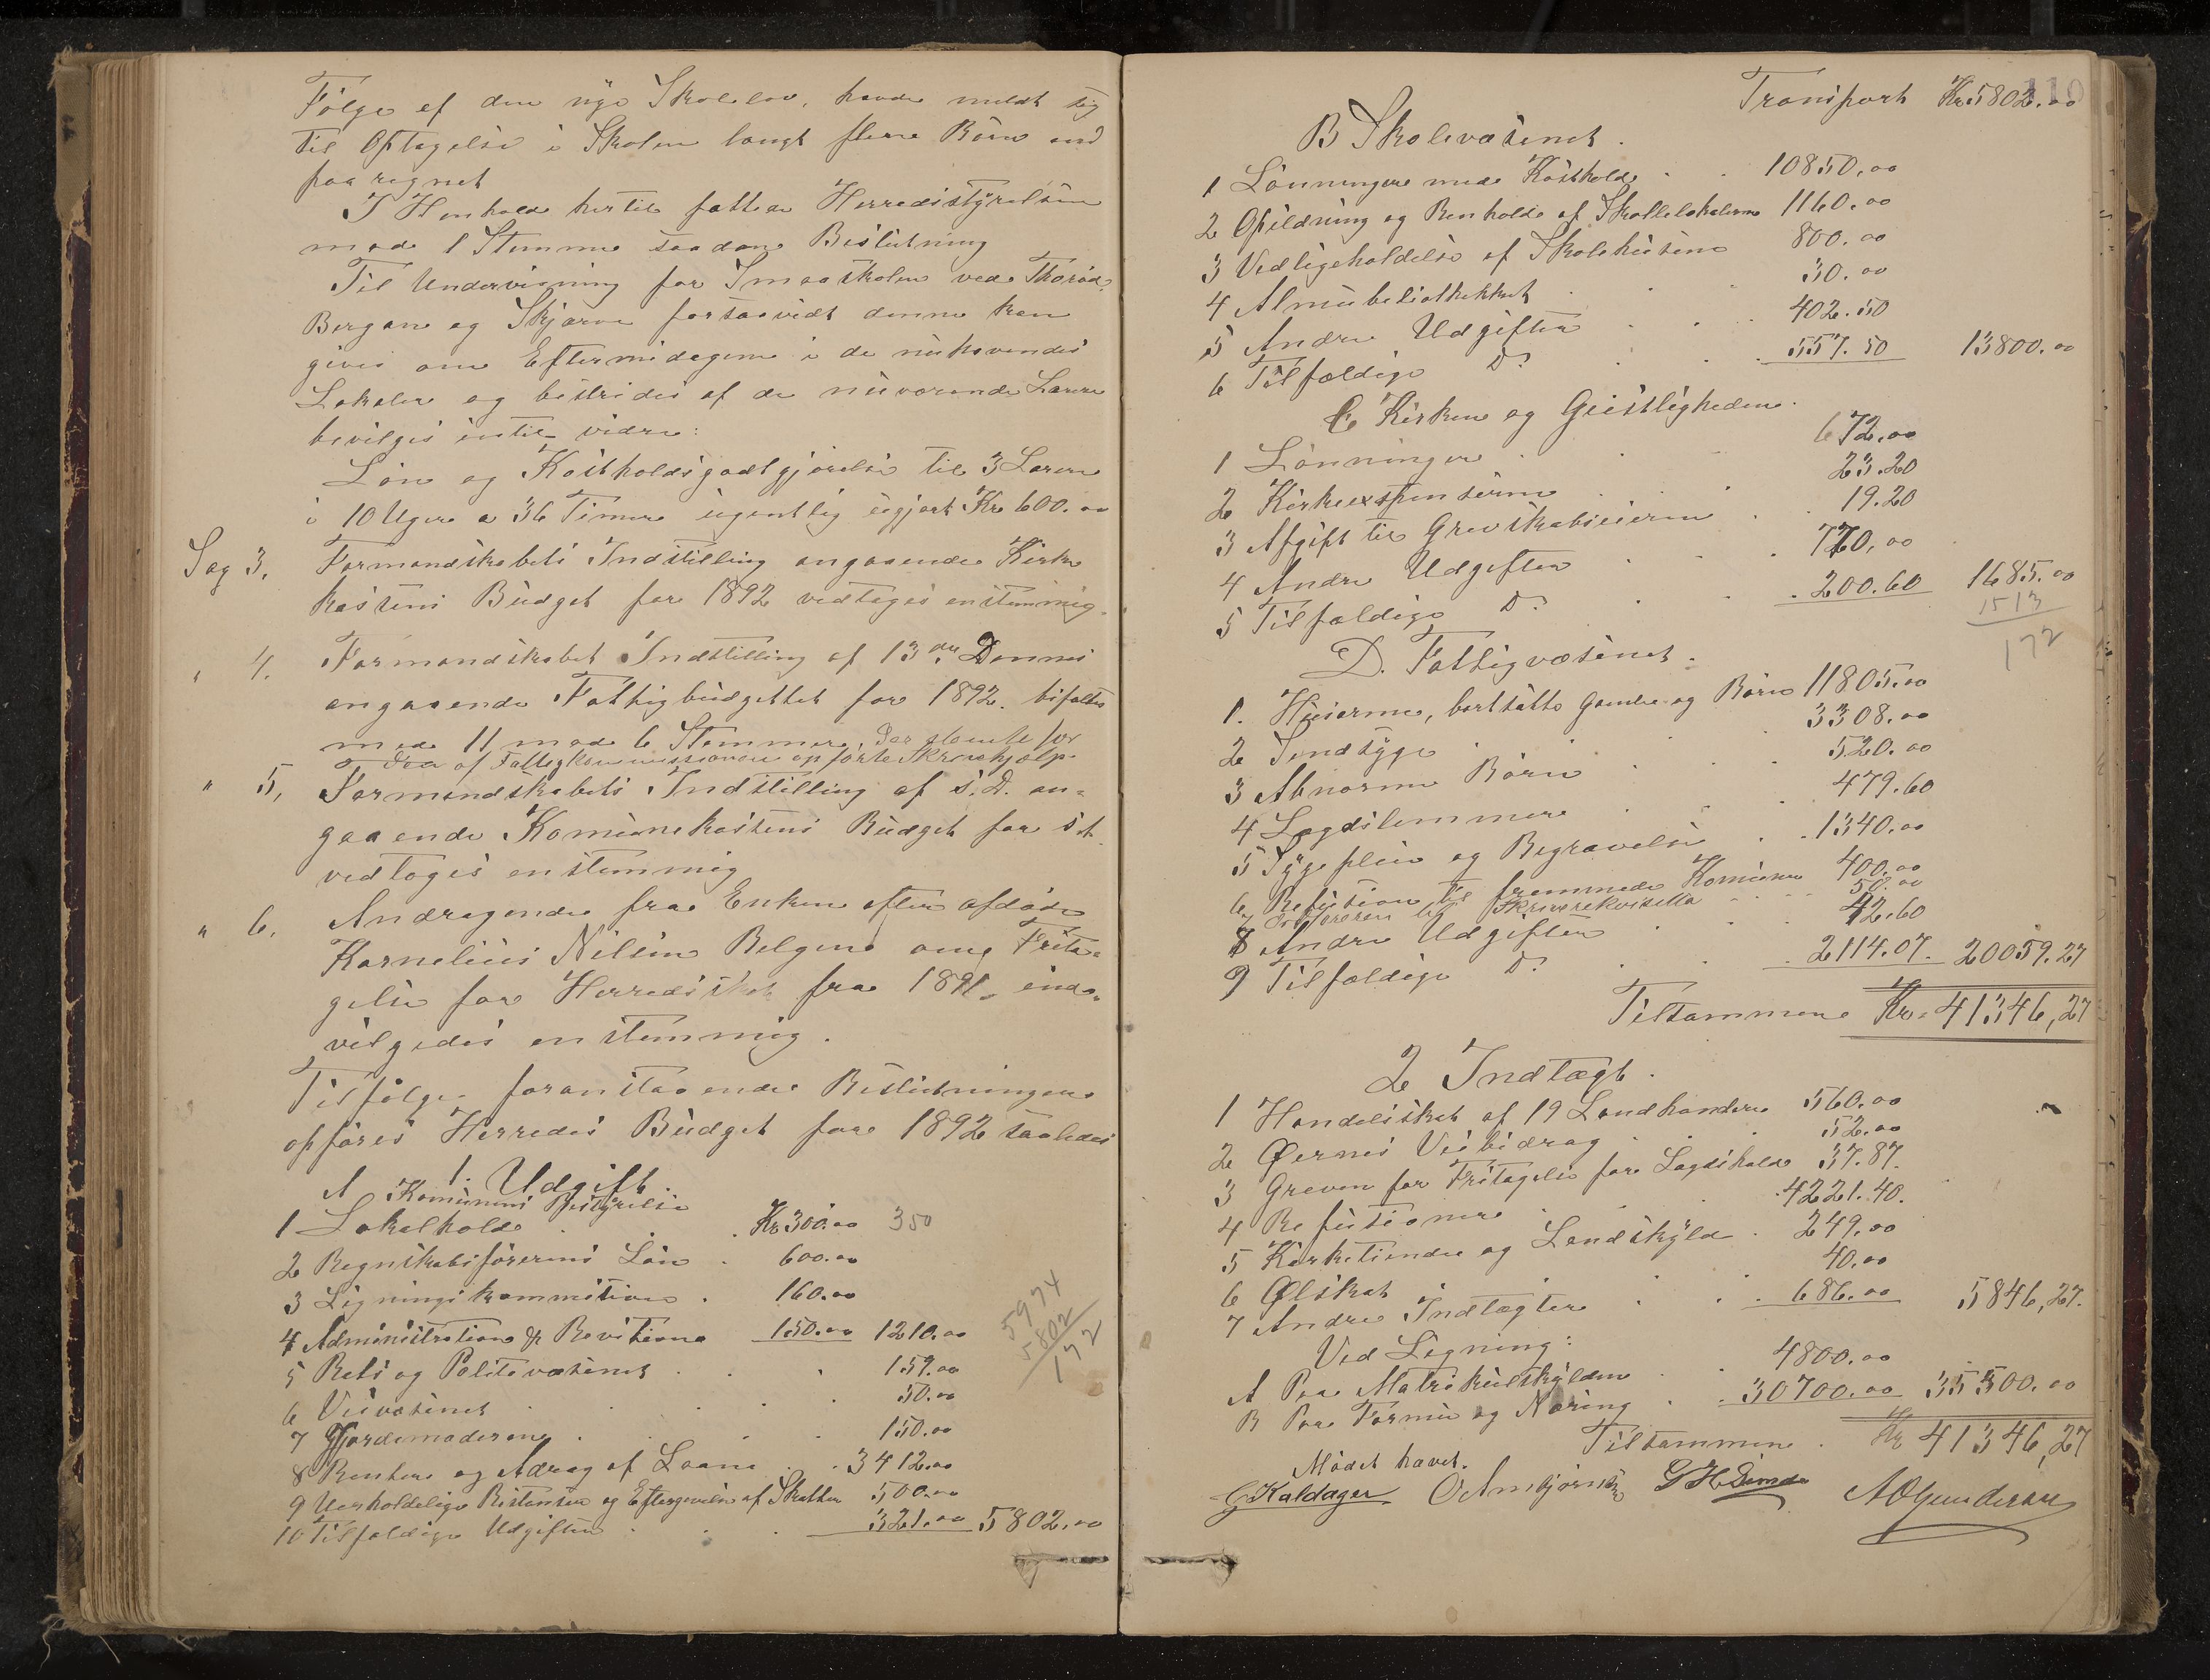 Følge af den nye Skolelov, havde meldt sig
til Optagelse i Skolen langt flere Børn end
paaregnet
I Henhold hertil fattede Herredsstyrelsen
mod 1 Stemme saadan Beslutning
Til Undervisning for Smaaskolen ved Thorød,
Bergan og Skjærve forsaavidt denne kan
gives om Eftermidagene i de nuhavendes
Lokaler og bestrides af de nuværende Lærere
bevilges intil vidre:
Løn og Kostholdsgodtgjørelse til 3 Lærere
i 10 Uger a 36 Timer ugentlig utgjort Kr 600.00
Sag 3. Formandskabets Indstilling angaaende Kirke
kassens Budget for 1892 vedtages enstemmig.
" 4. Formandskabet Indstilling af 13de Dennes
angaaende Fattigbudgettet for 1892. bifaldtes
med 11 mod 6 Stemmer, der stemte for
den af Fattigkommissionen opførte Skrivehjælp.
" 5. Formandskabets Indstilling af s. D. an-
gaaende Komunekassens Budget for s.A.
vedtages enstemmig
" 6. Andragende fra Enken efter afdøde
Kornelius Nilsen Belgen om Frita-
gelse for Herredsskat fra 1891 ind-
vilgedes enstemmig.
Tilfølge foranstaaende Beslutninger
opføres Herredes Budget for 1892 saaledes
1. Udgift.
A Komunens Bestyrelse
1 Lokalhold . . Kr 300.00 350
2 Regnskabsførerens Løn . 600.00
3 Ligningskommission . 160.00
4 Administration & Revision 150.00 1210.00
5 Rets og Politivæsenet . . . 159.00
6 Veivæsenet . . . . 50.00
7 Gjordemoderen . . . 150.00
8 Renter og Adrag af Laane . . 3412.00
9 Uerholdelige Restanser og Eftergivelse af Skatter 500.00
10 Tilfældige Udgifter . . . 321.00 5802.00
5974
5802
172
110
Transport Kr 5802.00
B Skolevæsenet.
1 Lønninger med Kosthold . . 10850,00
2 Opildning og Renhold af Skollelokalerne 1160.00
3 Vedligeholdelse af Skolehusene 800.00
4 Almubeliothekket . . . 30.00
5 Andre Udgifter . . . 402.50
6 Tilfældige Do . . . 557.50 13800.00
C Kirken og Geistligheden.
1 Lønninger . . . 672.00
2 Kirkeexspenserne . . . 23.20
3 Afgift til Grevskabseieren . . 19.20
4 Andre Udgifter . . . 770,00
5 Tilfældige Do . . . 200.60 1685.00
1513
172
D. Fattigvæsenet.
1. Husarme, bortsatte Gamle og Børn 11805.00
2 Sindsyge . . . 3308.00
3 Abnorme Børn . . . 520.00
4 Lægdslemmer . . . 479.60
5 Sygepleie og Begravelse . . 1340.00
6 Refusion til fremmede Komuner 400.00
7 Skriverekvisitta . . 50.00
8 Andre Udgifter . . . 42.60
9 Tilfældige Do . . . 2114.07. 20059.27
Tilsammen Kr. 41346,27
2 Indtægt.
1 Handelsskat af 19 Landhandlere 560.00
2 Øernes Veibidrag . . . 52.00
3 Greven for Fritagelse for Lægdshold 37.87.
4 Refusioner . . . 4221.40.
5 Kirketiender og Landskyld . 249.00
6 Ølskat . . . 40.00
7 Andre Indtægter . . . 686.00 5846,27.
Ved Ligning:
A Paa Matrikulskylden . 4800.00
B Paa Formue og Næring . . 30700.00 35500.00
Tilsammen . Kr 41346,27
Mødet hævet.
G Kaldager